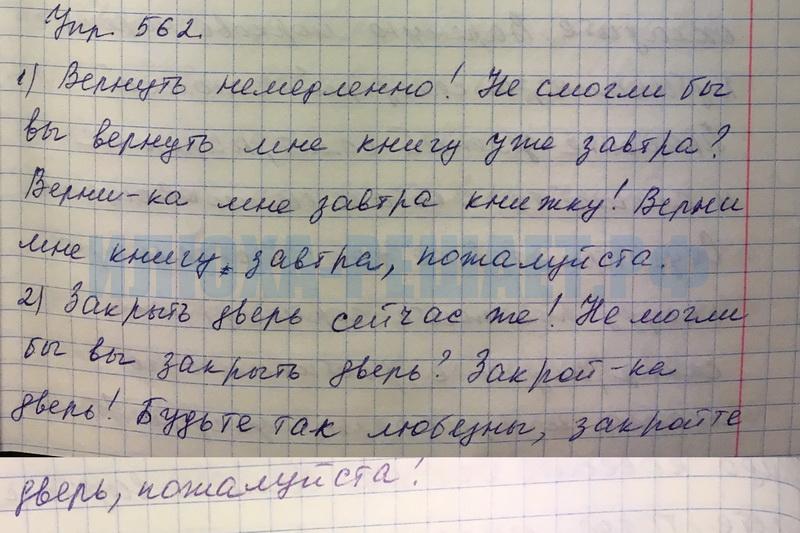 Упр. 562.
1) Вернуть немедленно! Не смогли бы
вы вернуть мне книгу уже завтра?
Верни-ка мне завтра книжку! Верни
мне книгу, завтра, пожалуйста.
ИЛЮХА-РЕШАЕТ.РФ
2) Закрыть дверь сейчас же! Не могли
бы вы закрыть дверь? Закрой-ка
дверь! Будьте так любезны, закройте
дверь, пожалуйста!